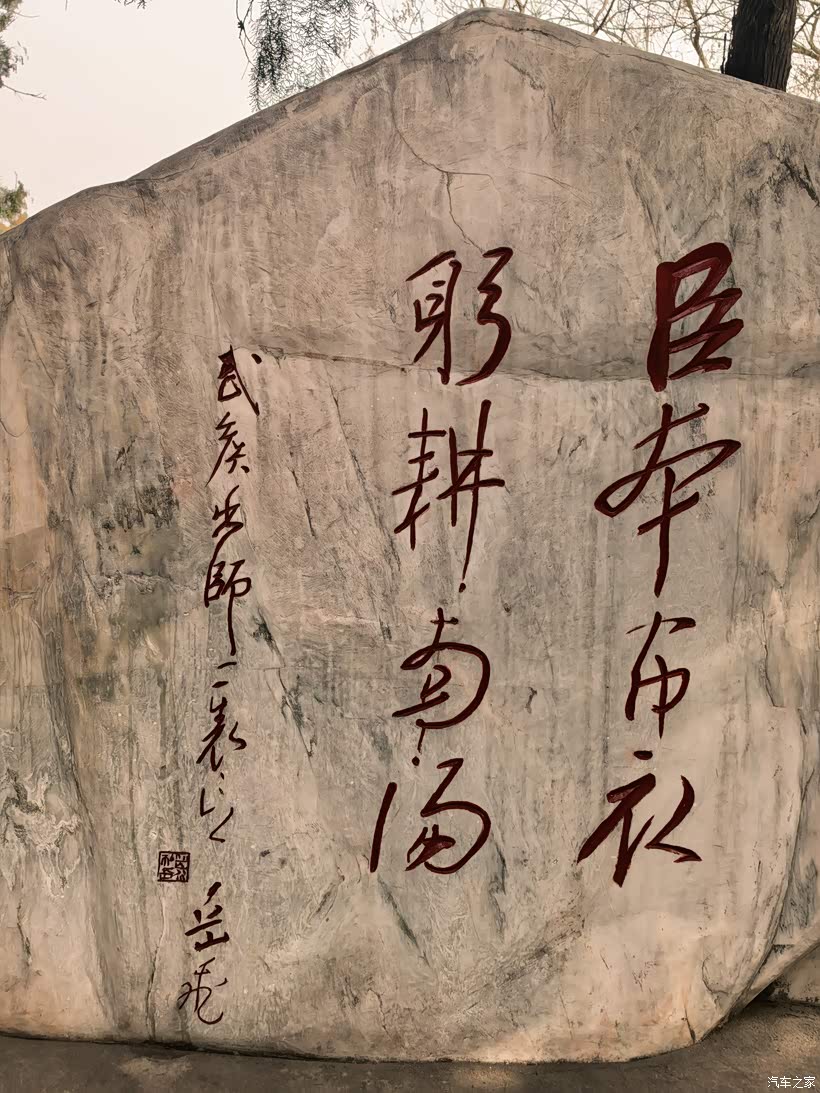 臣本布衣
躬耕南阳
武侯出师二表
岳飞
汽车之家